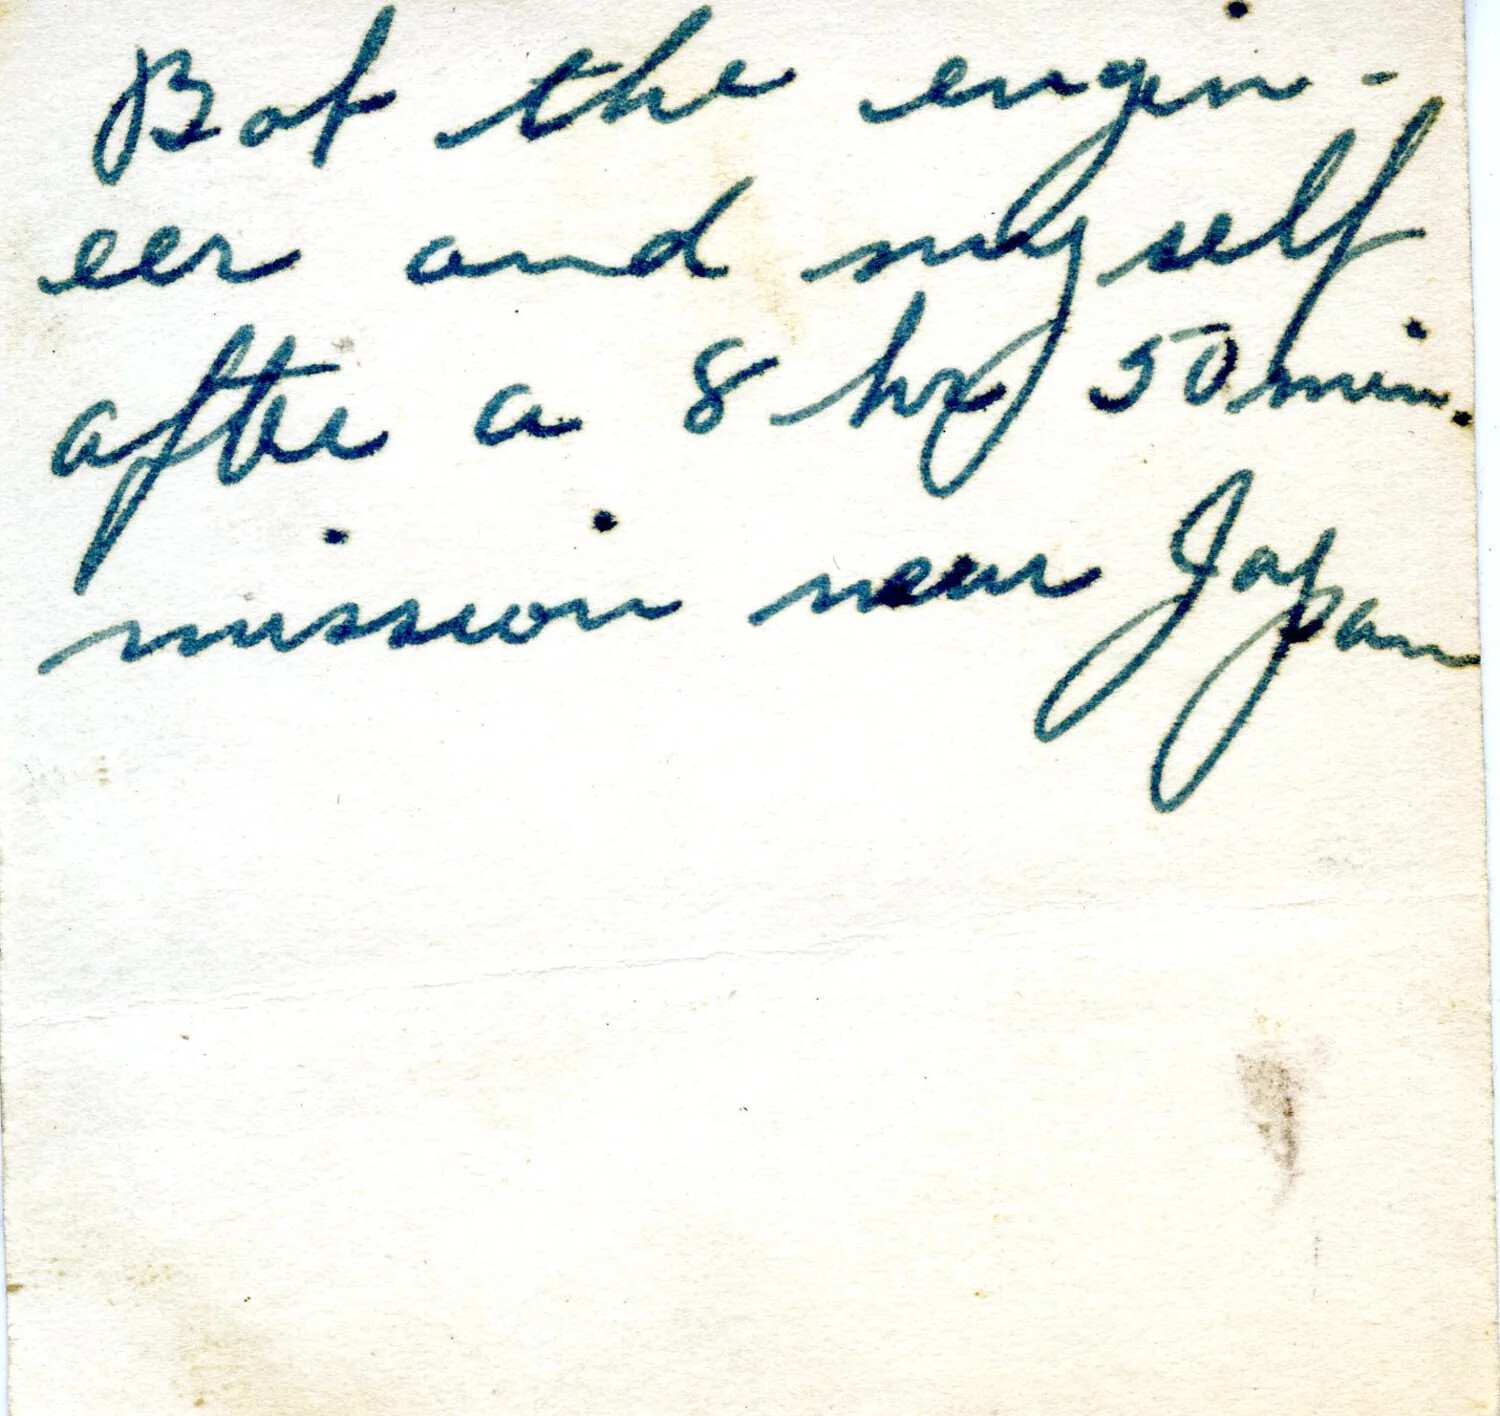 Bob the engin-
eer and myself
after a 8 hrs 50 min.
mission near Japan